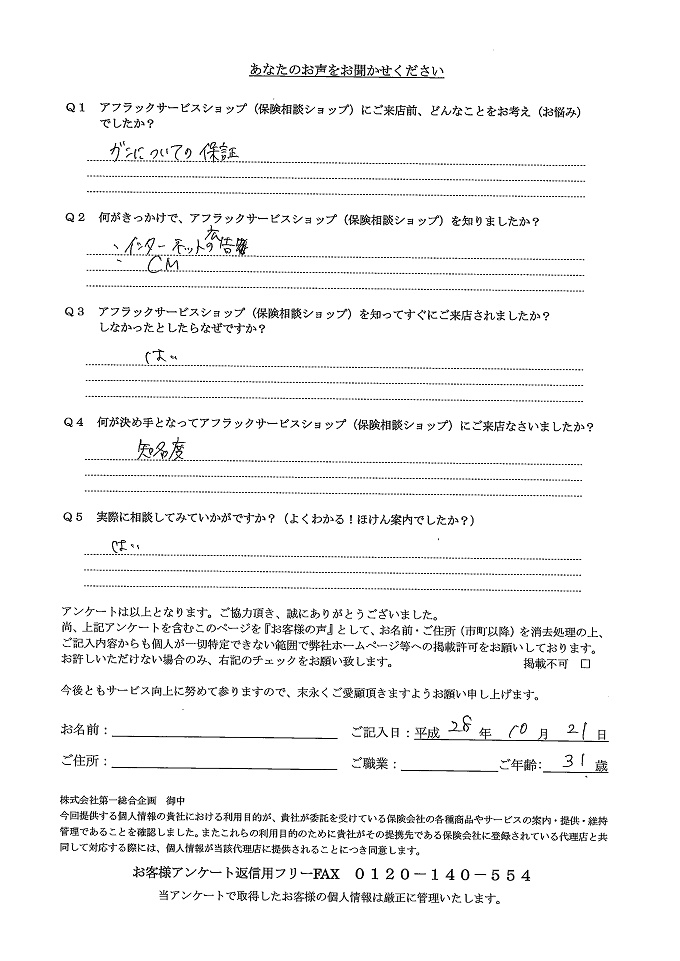 あなたのお声をお聞かせください
Q1 アフラックサービスショップ(保険相談ショップ)にご来店前、どんなことをお考え(お悩み)
でしたか?
ガンについての保証
Q2 何がきっかけで、アフラックサービスショップ(保険相談ショップ)を知りましたか?
・インターネットの広告
・CM
Q3 アフラックサービスショップ(保険相談ショップ)を知ってすぐにご来店されましたか?
しなかったとしたらなぜですか?
はい
Q4 何が決め手となってアフラックサービスショップ(保険相談ショップ)にご来店なさいましたか?
知名度
Q5 実際に相談してみていかがですか?(よくわかる!ほけん案内でしたか?)
はい
アンケートは以上となります。ご協力頂き、誠にありがとうございました。
尚、上記アンケートを含むこのページを『お客様の声』として、お名前・ご住所(市町以降)を消去処理の上、
ご記入内容からも個人が一切特定できない範囲で弊社ホームページ等への掲載許可をお願いしております。
お許しいただけない場合のみ、右記のチェックをお願い致します。 掲載不可 □
今後ともサービス向上に努めて参りますので、末永くご愛顧頂きますようお願い申し上げます。
お名前: ご記入日:平成 28 年 10 月 21 日
ご住所: ご職業: ご年齢: 31 歳
株式会社第一総合企画 御中
今回提供する個人情報の貴社における利用目的が、貴社が委託を受けている保険会社の各種商品やサービスの案内・提供・維持
管理であることを確認しました。またこれらの利用目的のために貴社がその提携先である保険会社に登録されている代理店と共
同して対応する際には、個人情報が当該代理店に提供されることにつき同意します。
お客様アンケート返信用フリーFAX 0120-140-554
当アンケートで取得したお客様の個人情報は厳正に管理いたします。